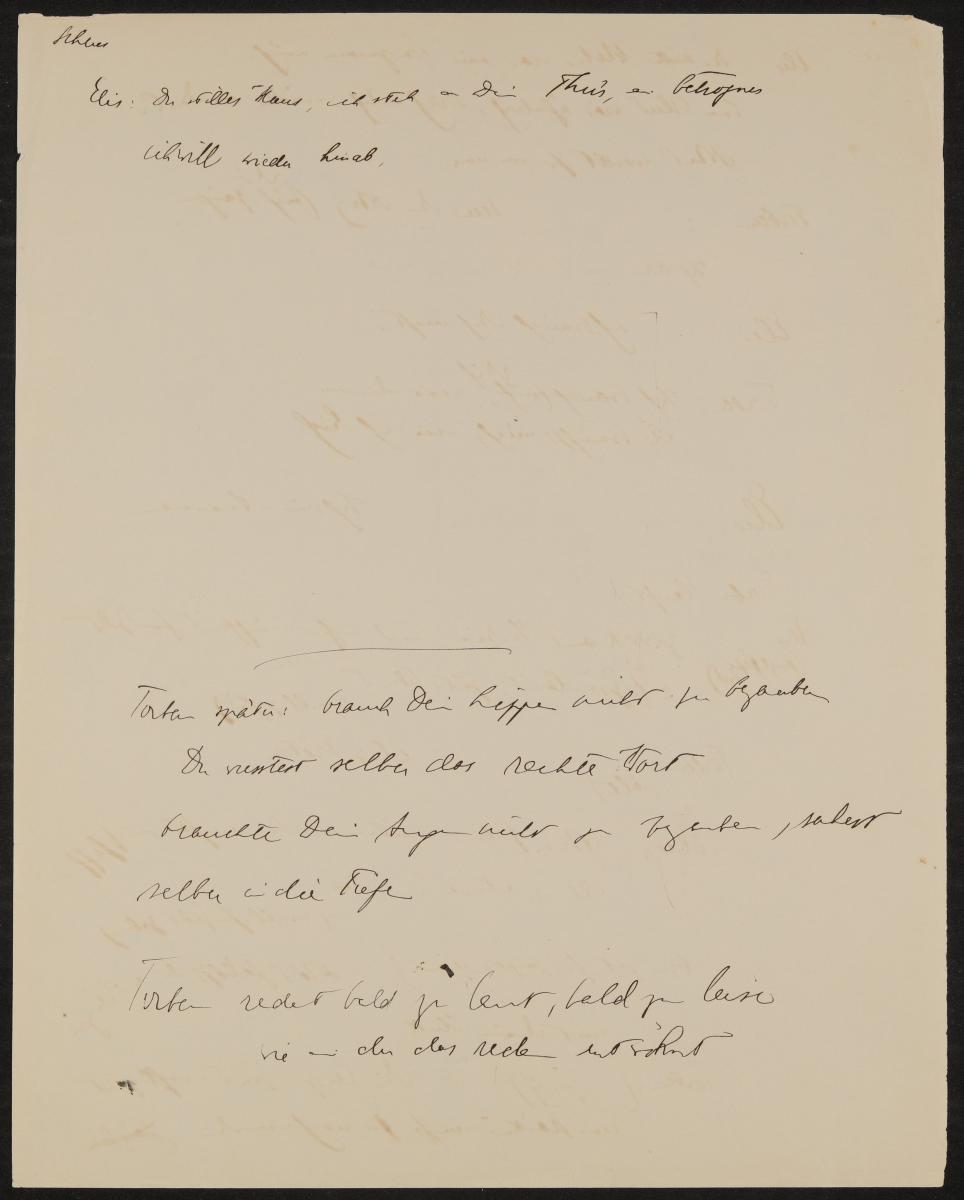 Schluss
Elis: Du stilles Haus, ich steh an Dein Thür, ein betrognes
ich will wieder hinab.
Torbern später: brauch Dein Lippen nicht zu bezaubern
Du wusstest selber das rechte Wort
brauchte Dein Augen nicht zu bezaubern, sahest
selber in die Tiefe
Torbern redet bald zu laut, bald zu leise
wie einer der das reden entwöhnt